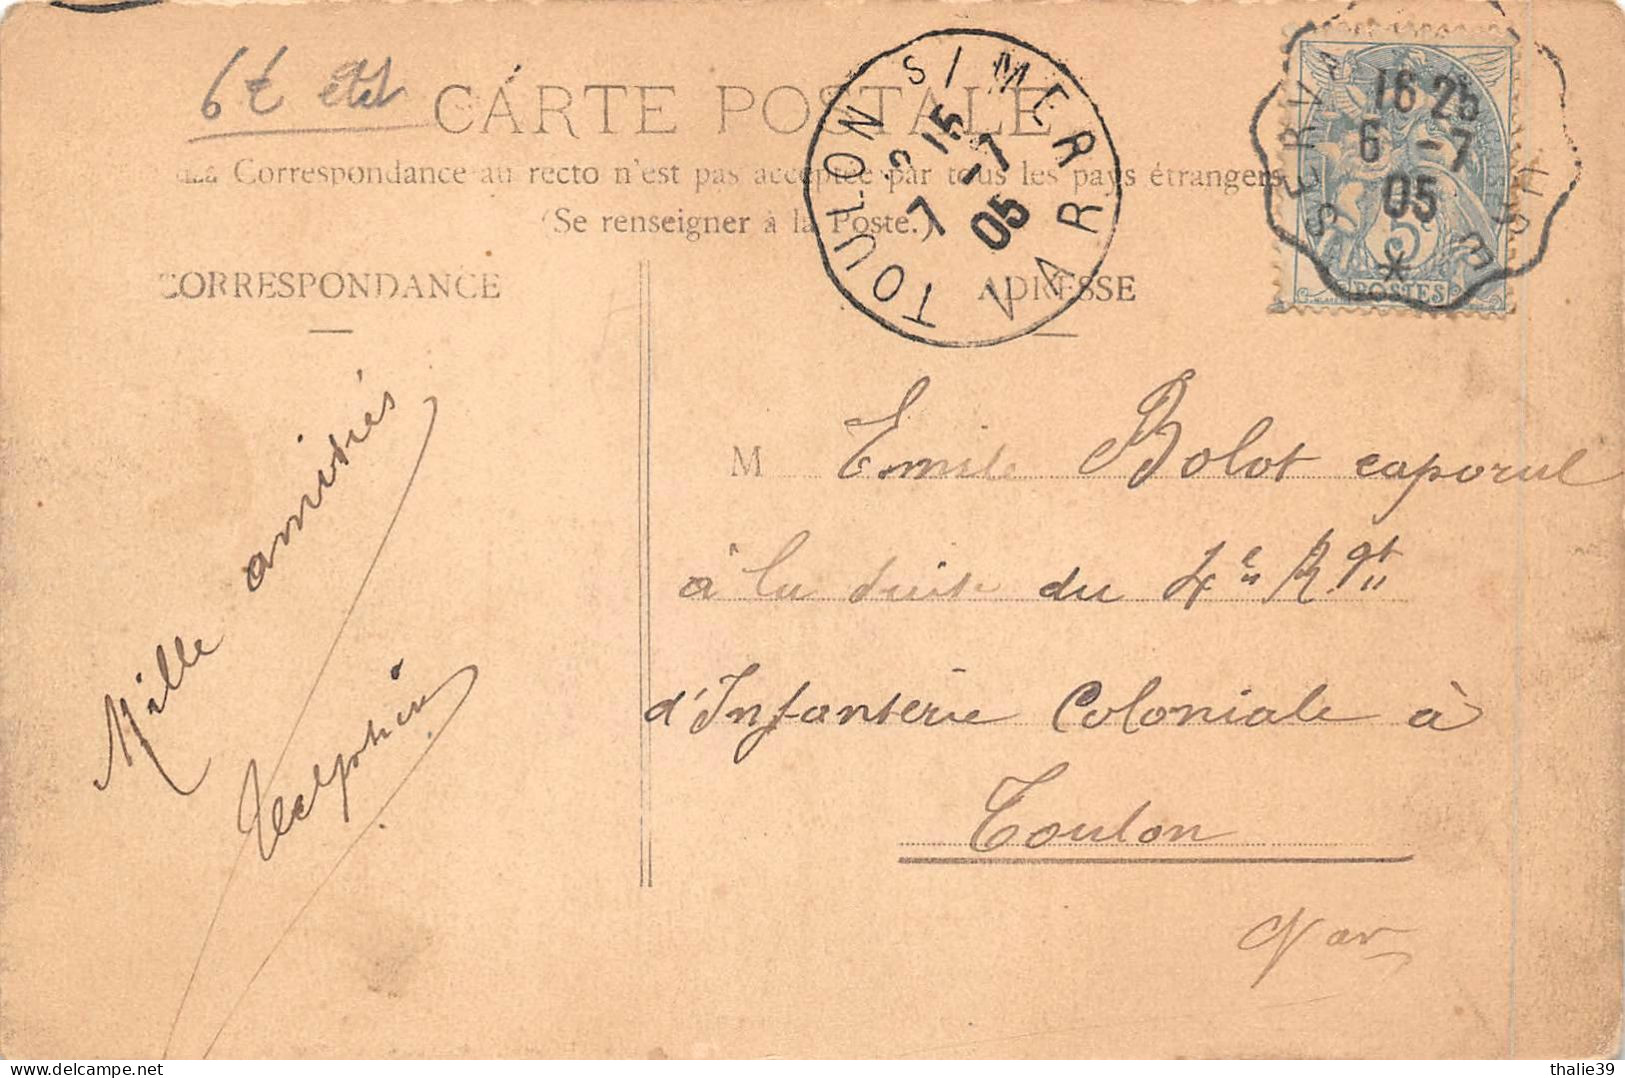 CARTE POSTALE
La Correspondance au recto n'est pas acceptée par tous les pays étrangers
(Se renseigner à la Poste.)
CORRESPONDANCE
ADRESSE
TOULON S/ MER VAR
2 15
7 -7
05
16 25
6 -7
05
*
SERVA
5
POSTES
Mille amitiés
Delphin
M Emile Bolot caporal
à la suite du 4e Rgt
d'Infanterie Coloniale à
Toulon
Var
delcampe.net
thalie39